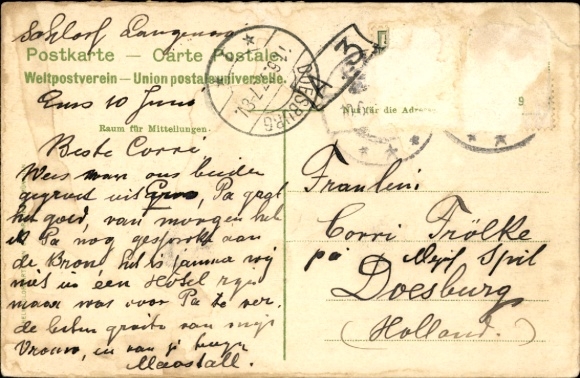 Postkarte – Carte Postale
Weltpostverein – Union postale universelle.
Ems 10 Juni
Raum für Mitteilungen.
Nur für die Adre
9
DOESBURG
A 3
Beste Corri
Wees van ons beiden
gegroet uit Ems, Pa gaat
het goed, van morgen heb
ik Pa nog gesproken aan
de Bron. Het is jammer wij
niet in één Hotel zijn
maar was voor Pa te ver.
de beste groete van mijn
Vrouw, en van je
Fraulein
Corri Frölke
pa Mej Spil
Doesburg
(Holland.)